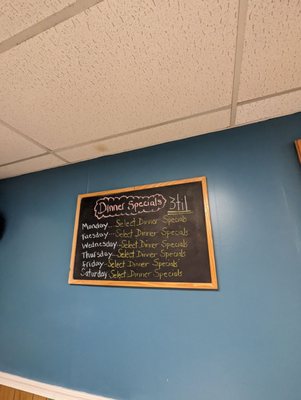 Dinner Specials
Monday...Select Dinner Specials
Tuesday...Select Dinner Specials
Wednesday...Select Dinner Specials
Thursday...Select Dinner Specials
Friday...Select Dinner Specials
Saturday...Select Dinner Specials